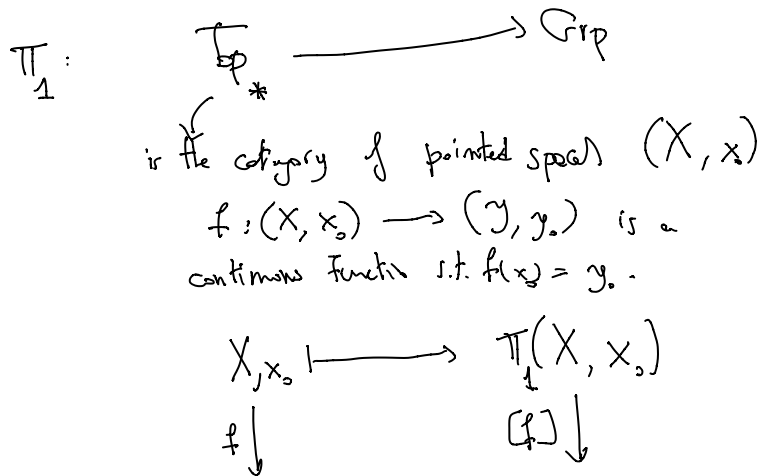 π₁ : Top_* ⟶ Grp
is the category of pointed spaces (X, x₀)
f : (X, x₀) ⟶ (Y, y₀) is a
continuous function s.t. f(x₀) = y₀.
X, x₀ ⟼ π₁(X, x₀)
f ↓ [f] ↓